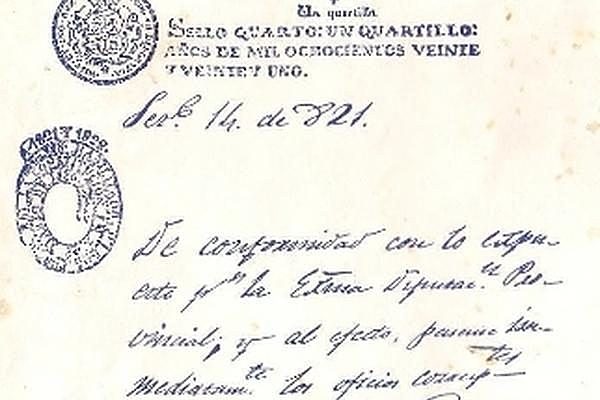 Un quartillo
SELLO QUARTO: UN QUARTILLO:
AÑOS DE MIL OCHOCIENTOS VEINTE
Y VEINTE Y UNO.
14. de 821.
De conformidad con lo espu-
esto pr la Exma Diputacn Pro-
vincial, y al efecto, pasense in-
mediatamte los oficios corresptes